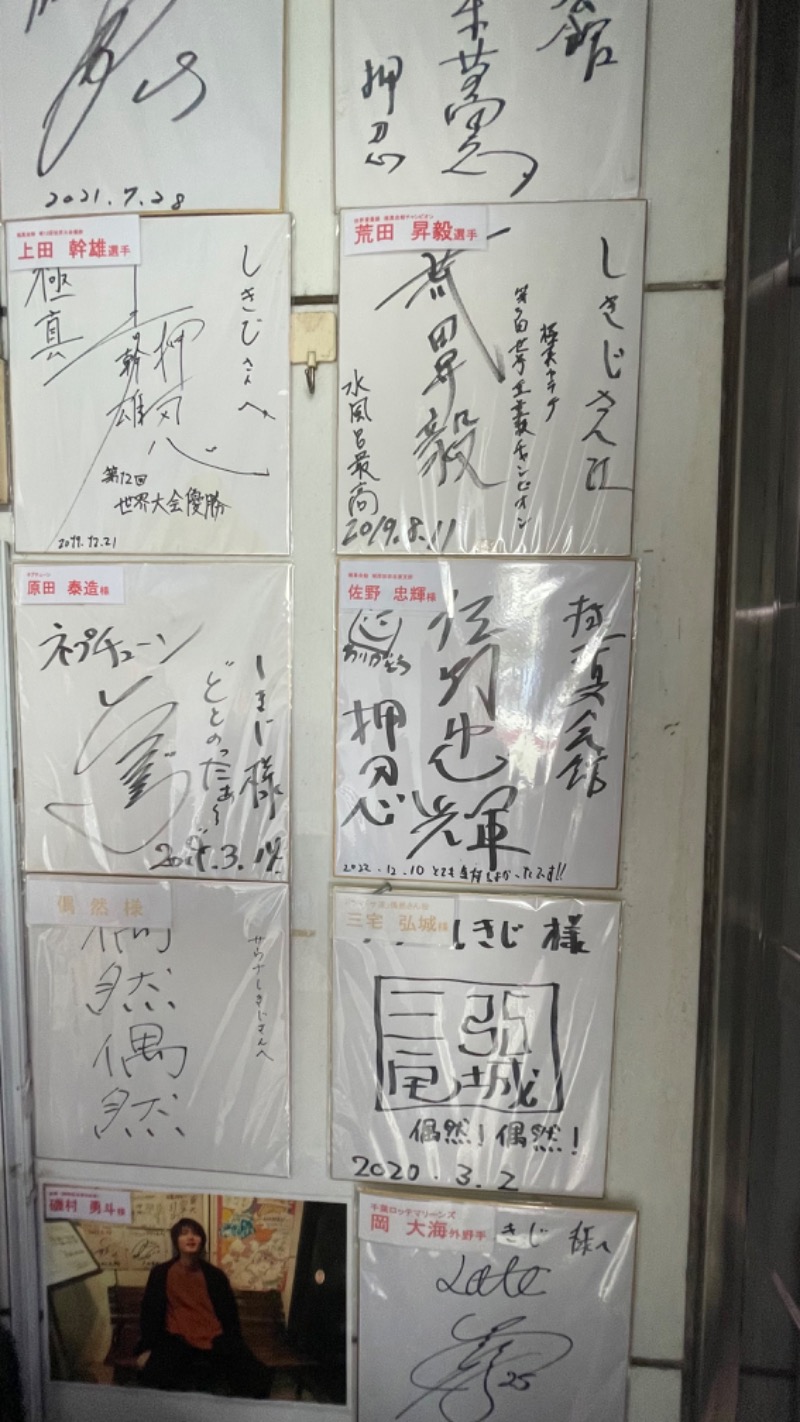 2021.7.28
会館
押忍
上田 幹雄選手
しきじさんへ
極真
押忍
幹雄
第12回
世界大会優勝
2019.12.21
荒田 昇毅選手
しきじさん江
極真カラテ
荒田昇毅
水風呂最高
2019.8.11
ネプチューン
原田 泰造様
ネプチューン
しきじ様
ととのったぁ〜
佐野 忠輝様
極真会館
佐野忠輝
ありがとう
押忍
2022.12.10 とても気持ちよかったです!!
偶然様
サウナしきじさんへ
偶然
偶然
三宅 弘城様
しきじ 様
三宅
弘城
偶然! 偶然!
2020.3.2
磯村 勇斗様
千葉ロッテマリーンズ
岡 大海外野手
きじ 様へ
25